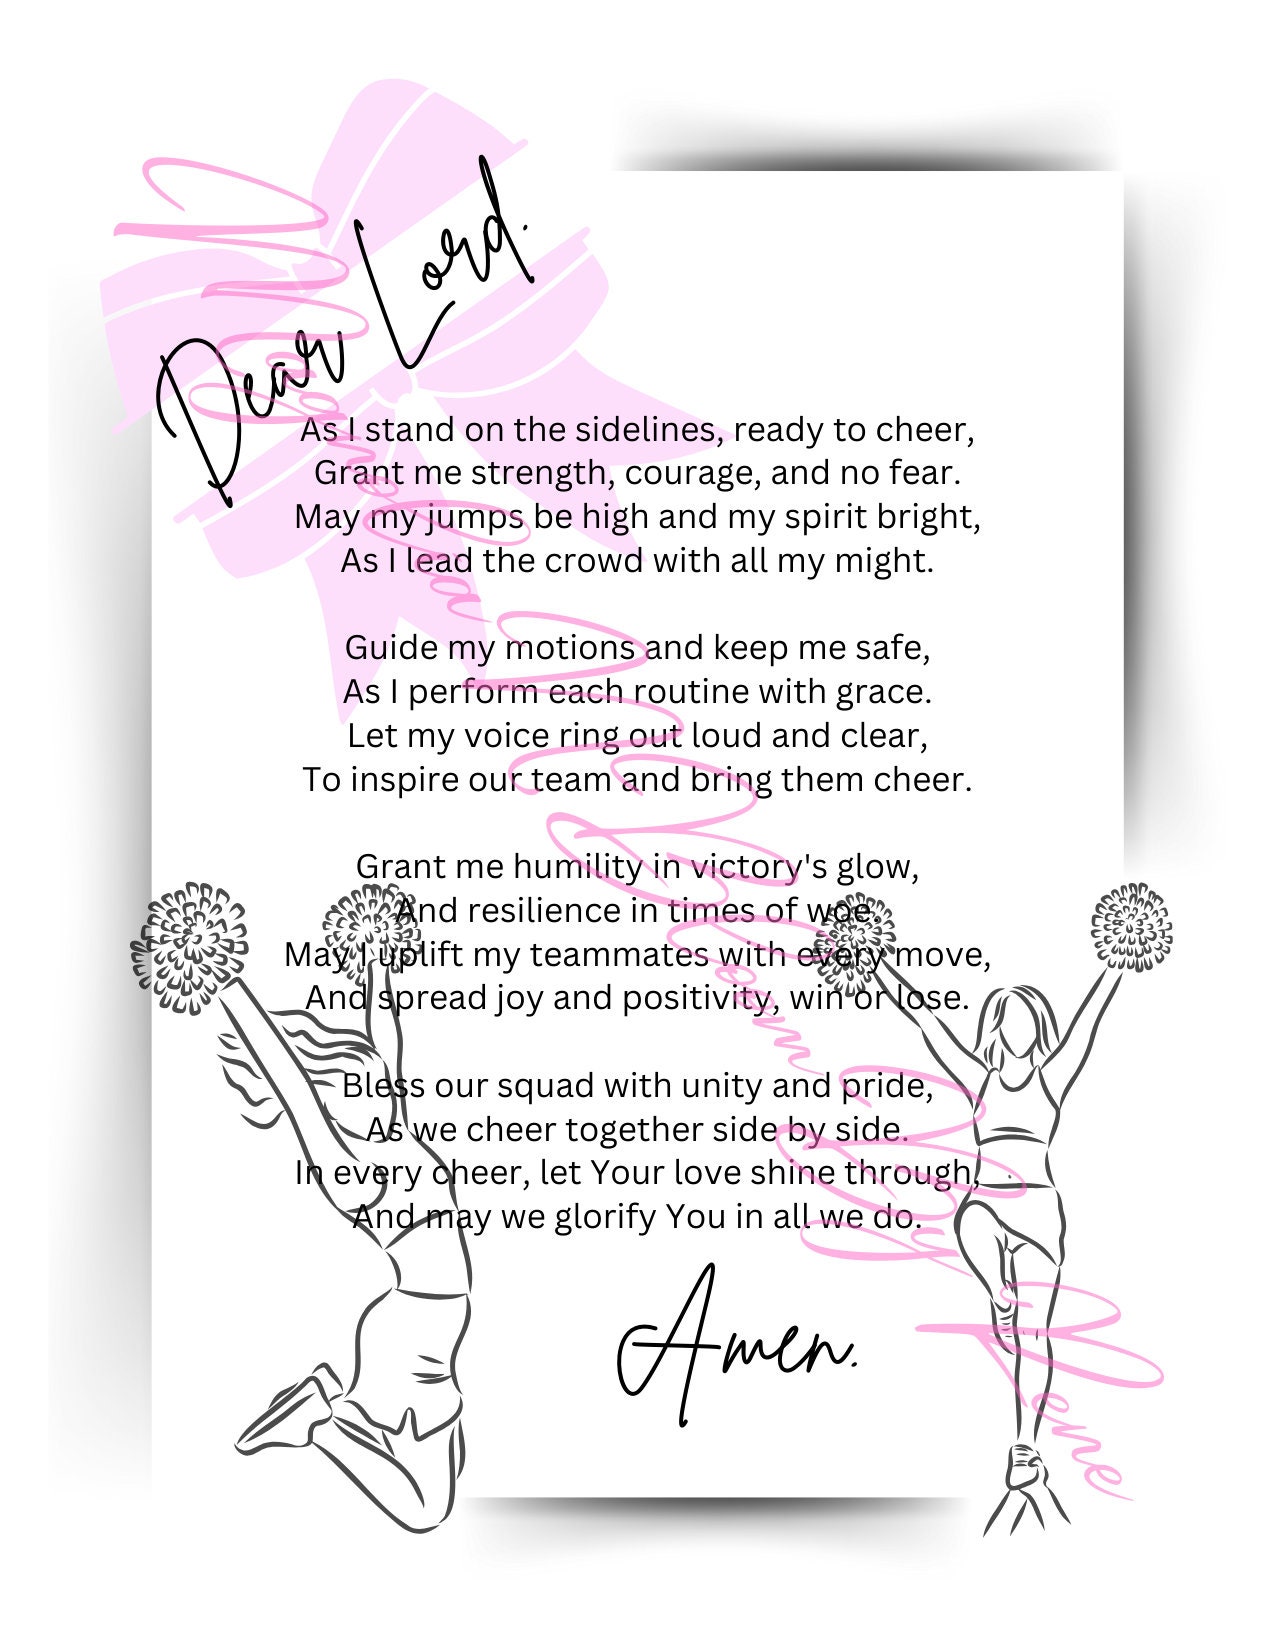 Dear Lord.
As I stand on the sidelines, ready to cheer,
Grant me strength, courage, and no fear.
May my jumps be high and my spirit bright,
As I lead the crowd with all my might.
Guide my motions and keep me safe,
As I perform each routine with grace.
Let my voice ring out loud and clear,
To inspire our team and bring them cheer.
Grant me humility in victory's glow,
And resilience in times of woe.
May I uplift my teammates with every move,
And spread joy and positivity, win or lose.
Bless our squad with unity and pride,
As we cheer together side by side.
In every cheer, let Your love shine through,
And may we glorify You in all we do.
Amen.
Magnolia Bloom By